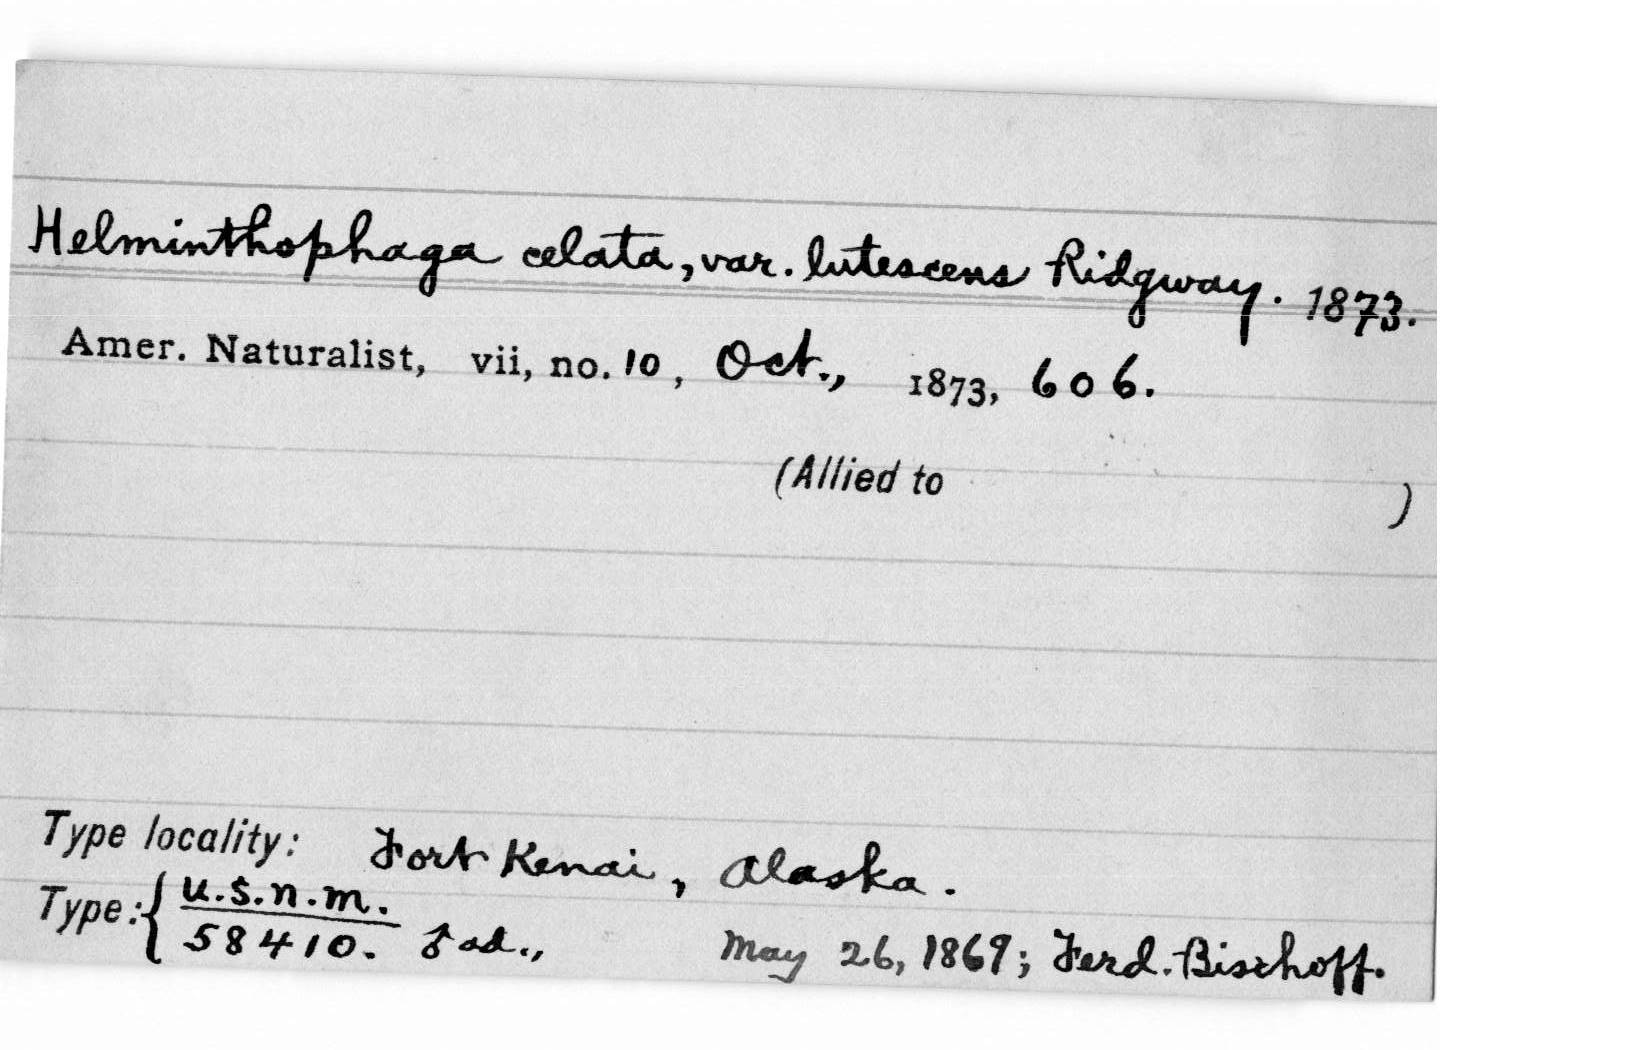 Helminthophaga celata, var. lutescens Ridgway. 1873.
Amer. Naturalist, vii, no. 10, Oct., 1873, 606.
(Allied to )
Type locality: Fort Kenai, Alaska.
Type: { U.S.N.M.
58410. ♂ ad., May 26, 1869; Ferd. Bischoff.